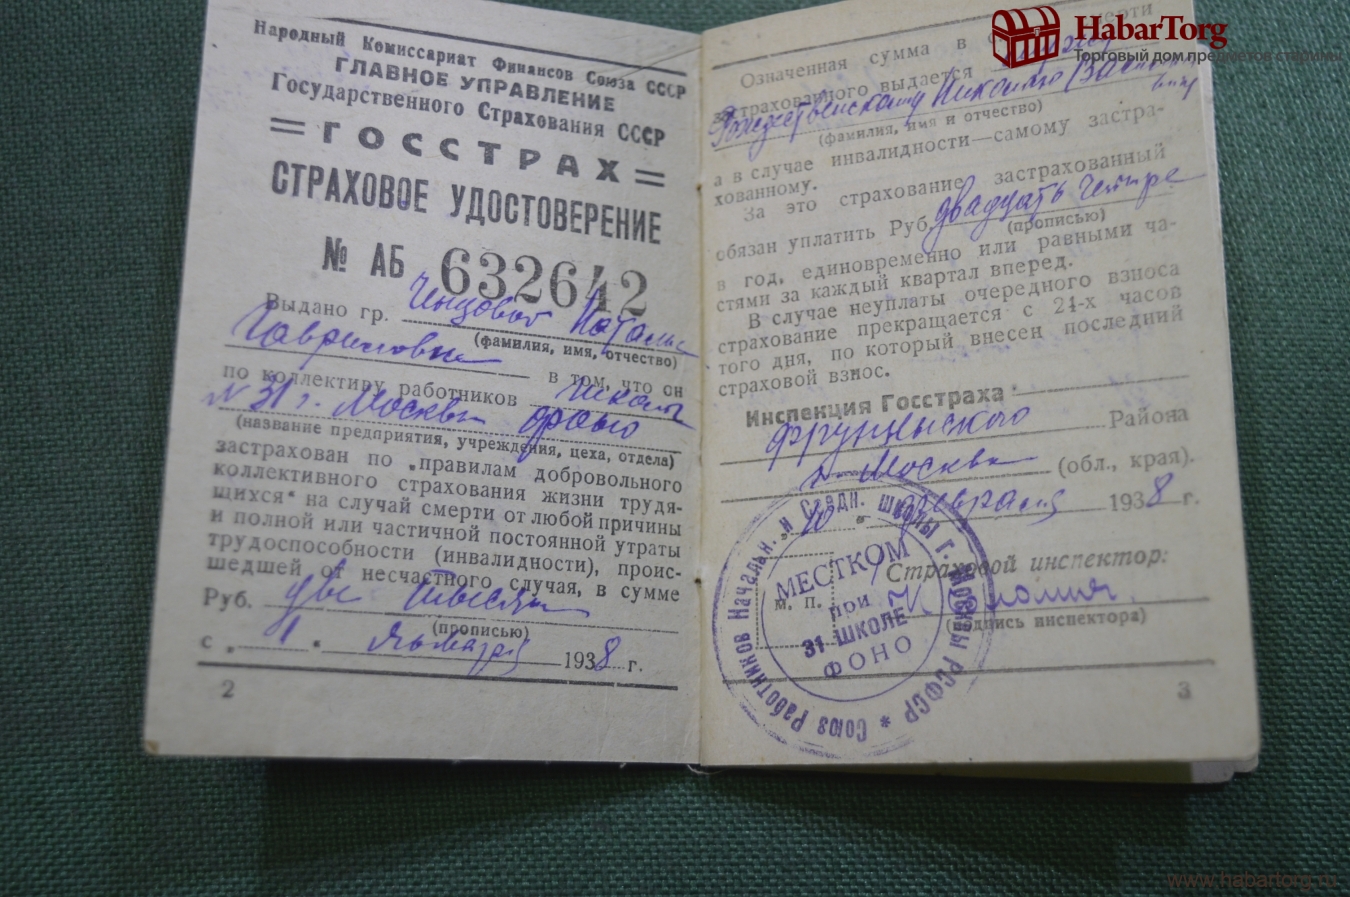 Народный Комиссариат Финансов Союза ССР
ГЛАВНОЕ УПРАВЛЕНИЕ
Государственного Страхования СССР
=ГОССТРАХ=
СТРАХОВОЕ УДОСТОВЕРЕНИЕ
№ АБ 632642
Выдано гр.
(фамилия, имя, отчество)
Гавриловне в том, что он
по коллективу работников школы
№ 31 г. Москвы фоно
(название предприятия, учреждения, цеха, отдела)
застрахован по „правилам добровольного
коллективного страхования жизни трудя-
щихся“ на случай смерти от любой причины
и полной или частичной постоянной утраты
трудоспособности (инвалидности), проис-
шедшей от несчастного случая, в сумме
Руб. две тысячи
(прописью)
с „ 1 “ января 1938 г.
2
Означенная сумма в смерти
застрахованного выдается
Рождественскому Николаю
(фамилия, имя и отчество)
а в случае инвалидности—самому застра-
хованному.
За это страхование застрахованный
обязан уплатить Руб. двадцать четыре
(прописью)
в год, единовременно или равными ча-
стями за каждый квартал вперед.
В случае неуплаты очередного взноса
страхование прекращается с 24-х часов
того дня, по который внесен последний
страховой взнос.
Инспекция Госстраха
Фрунзенского Района
г. Москвы (обл., края).
„ 10 “ февраля 1938 г.
Страховой инспектор:
м. п.
(подпись инспектора)
3
Союз Работников Начальн. и Средн. школы г. Москвы РСФСР *
МЕСТКОМ
при
31 ШКОЛЕ
ФОНО
HabarTorg
Торговый дом предметов старины
www.habartorg.ru